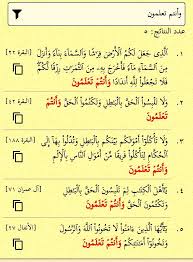 وأنتم تعلمون
عدد النتائج: ٥
١. الَّذِى جَعَلَ لَكُمُ الْأَرْضَ فِرَاشًا وَالسَّمَاءَ بِنَاءً وَأَنزَلَ [البقرة ٢٢]
مِنَ السَّمَاءِ مَاءً فَأَخْرَجَ بِهِ مِنَ الثَّمَرَاتِ رِزْقًا لَّكُمْ
فَلَا تَجْعَلُوا لِلَّهِ أَندَادًا وَأَنتُمْ تَعْلَمُونَ
٢. وَلَا تَلْبِسُوا الْحَقَّ بِالْبَاطِلِ وَتَكْتُمُوا الْحَقَّ وَأَنتُمْ [البقرة ٤٢]
تَعْلَمُونَ
٣. وَلَا تَأْكُلُوا أَمْوَالَكُم بَيْنَكُم بِالْبَاطِلِ وَتُدْلُوا بِهَا إِلَى [البقرة ١٨٨]
الْحُكَّامِ لِتَأْكُلُوا فَرِيقًا مِّنْ أَمْوَالِ النَّاسِ بِالْإِثْمِ
وَأَنتُمْ تَعْلَمُونَ
٤. يَاأَهْلَ الْكِتَابِ لِمَ تَلْبِسُونَ الْحَقَّ بِالْبَاطِلِ [آل عمران ٧١]
وَتَكْتُمُونَ الْحَقَّ وَأَنتُمْ تَعْلَمُونَ
٥. يَاأَيُّهَا الَّذِينَ ءَامَنُوا لَا تَخُونُوا اللَّهَ وَالرَّسُولَ [الأنفال ٢٧]
وَتَخُونُوا أَمَانَاتِكُمْ وَأَنتُمْ تَعْلَمُونَ